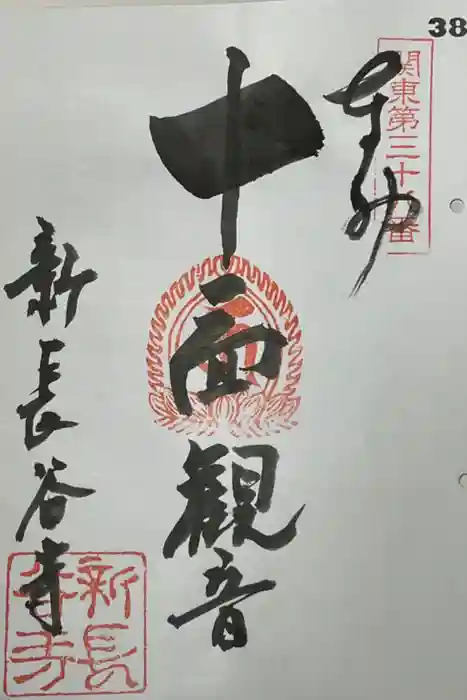 38
関東第三十八番
奉拝
十一面
観音
新長谷寺
新長
谷寺